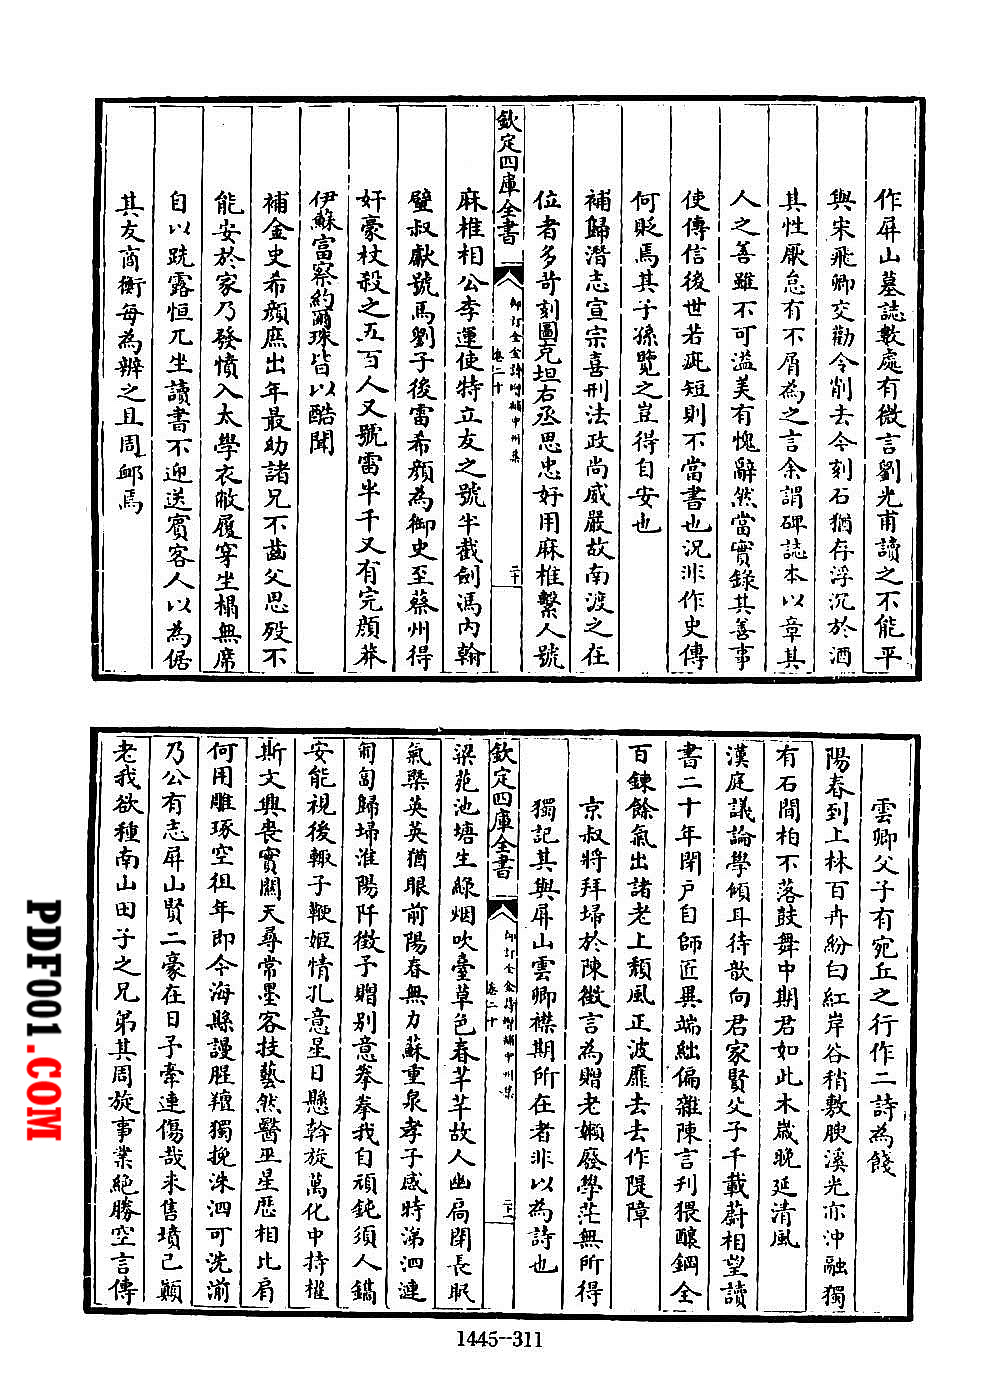 作屏山墓誌數處有微言劉光甫讀之不能平
與宋飛卿交勸令削去今刻石猶存浮沉於酒
其性厭怠有不屑為之言余謂碑誌本以章其
人之善雖不可溢美有愧辭然當實錄其善事
使傳信後世若疵短則不當書也況非作史傳
何貶焉其子孫覽之豈得自安也
補歸潛志宣宗喜刑法政尚威嚴故南渡之在
位者多苛刻圖克坦右丞思忠好用麻椎擊人號
欽定四庫全書
御訂全金詩增補中州集
卷二十
二十
麻椎相公李運使特立友之號半截劍馮內翰
璧叔獻號馬劉子後雷希顏為御史至蔡州得
奸豪杖殺之五百人又號雷半千又有完顏莽
伊蘇富察約爾珠皆以酷聞
補金史希顏庶出年最幼諸兄不齒父思歿不
能安於家乃發憤入太學衣敝履穿坐榻無席
自以跣露恒兀坐讀書不迎送賓客人以為倨
其友商衡每為辨之且周卹焉
雲卿父子有宛丘之行作二詩為餞
陽春到上林百卉紛白紅岸谷稍敷腴溪光亦沖融獨
有石間柏不落鼓舞中期君如此木歲晚延清風
漢庭議論學傾耳待歆向君家賢父子千載蔚相望讀
書二十年閉戶自師匠異端絀偏雜陳言刋猥釀鋼全
百鍊餘氣出諸老上頹風正波靡去去作隄障
京叔將拜埽於陳徵言為贈老嬾廢學茫無所得
獨記其與屏山雲卿襟期所在者非以為詩也
欽定四庫全書
御訂全金詩增補中州集
卷二十
二十一
梁苑池塘生綠烟吹臺草色春芊芊故人幽扃閉長眠
氣槩英英猶眼前陽春無力蘇重泉孝子感時涕泗漣
匍匐歸埽淮陽阡徵予贈别意拳拳我自頑鈍須人鐫
安能視後輙子鞭姬情孔意星日懸斡旋萬化中持權
斯文興喪實關天尋常墨客技藝然醫巫星歷相比肩
何用雕琢空徂年即今海縣謾腥羶獨挽洙泗可洗湔
乃公有志屏山賢二豪在日予牽連傷哉未售墳已顛
老我欲種南山田子之兄弟其周旋事業絕勝空言傳
1445--311
PDF001.COM